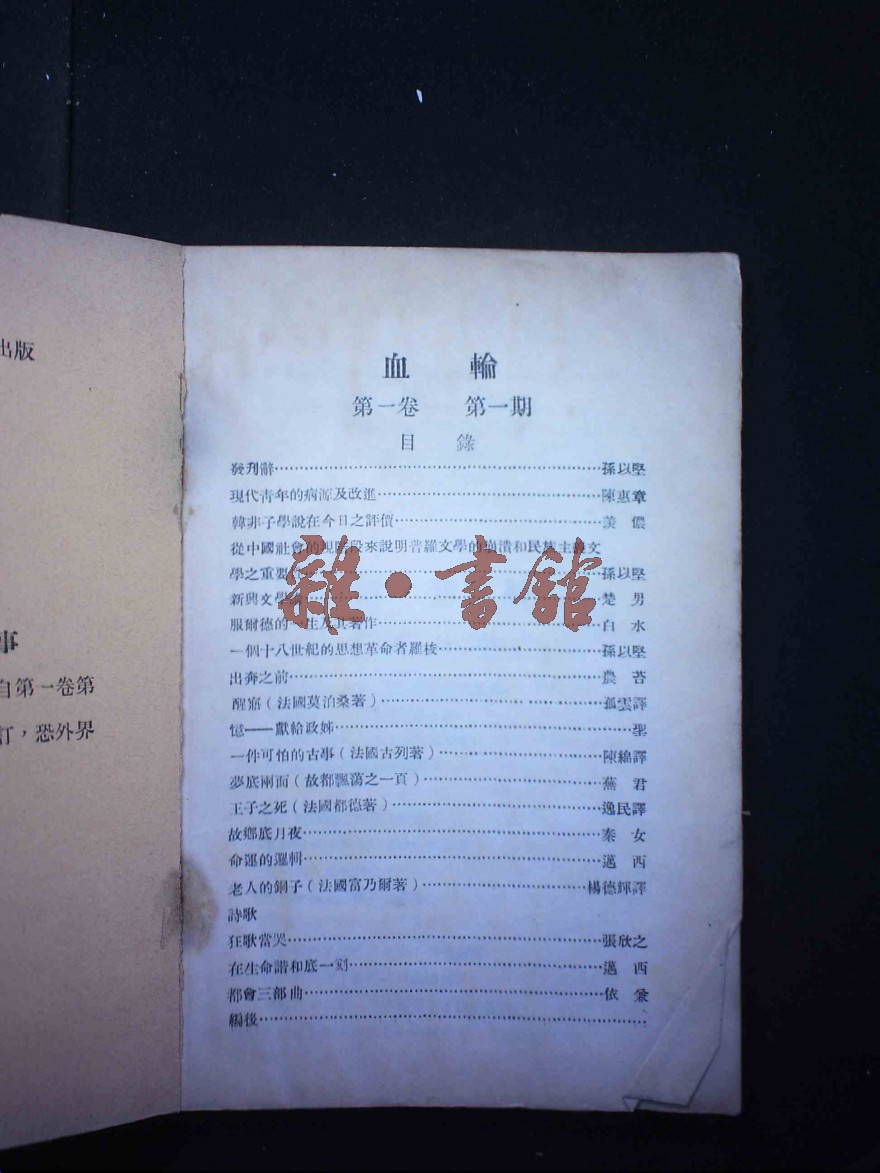 出版
事
自第一卷第
訂，恐外界
血輪
第一卷 第一期
目錄
發刊辭……孫以堅
現代青年的病源及改進……陳惠章
韓非子學說在今日之評價……美儂
從中國社會的現階段來說明普羅文學的崩潰和民族主義文
學之重要……孫以堅
新興文學……楚男
服爾德的一生及其著作……白水
一個十八世紀的思想革命者羅梭……孫以堅
出奔之前……農苔
醒寤（法國莫泊桑著）……孤雲譯
憶——獻給政姊……聖
一件可怕的古事（法國古列著）……陳綿譯
夢底兩面（故都飄蕩之一頁）……燕君
王子之死（法國都德著）……逸民譯
故鄉底月夜……秦女
命運的邏輯……邁西
老人的銅子（法國富乃爾著）……楊德輝譯
詩歌
狂歌當哭……張欣之
在生命諧和底一刻……邁西
都會三部曲……依
編後……
雜·書館